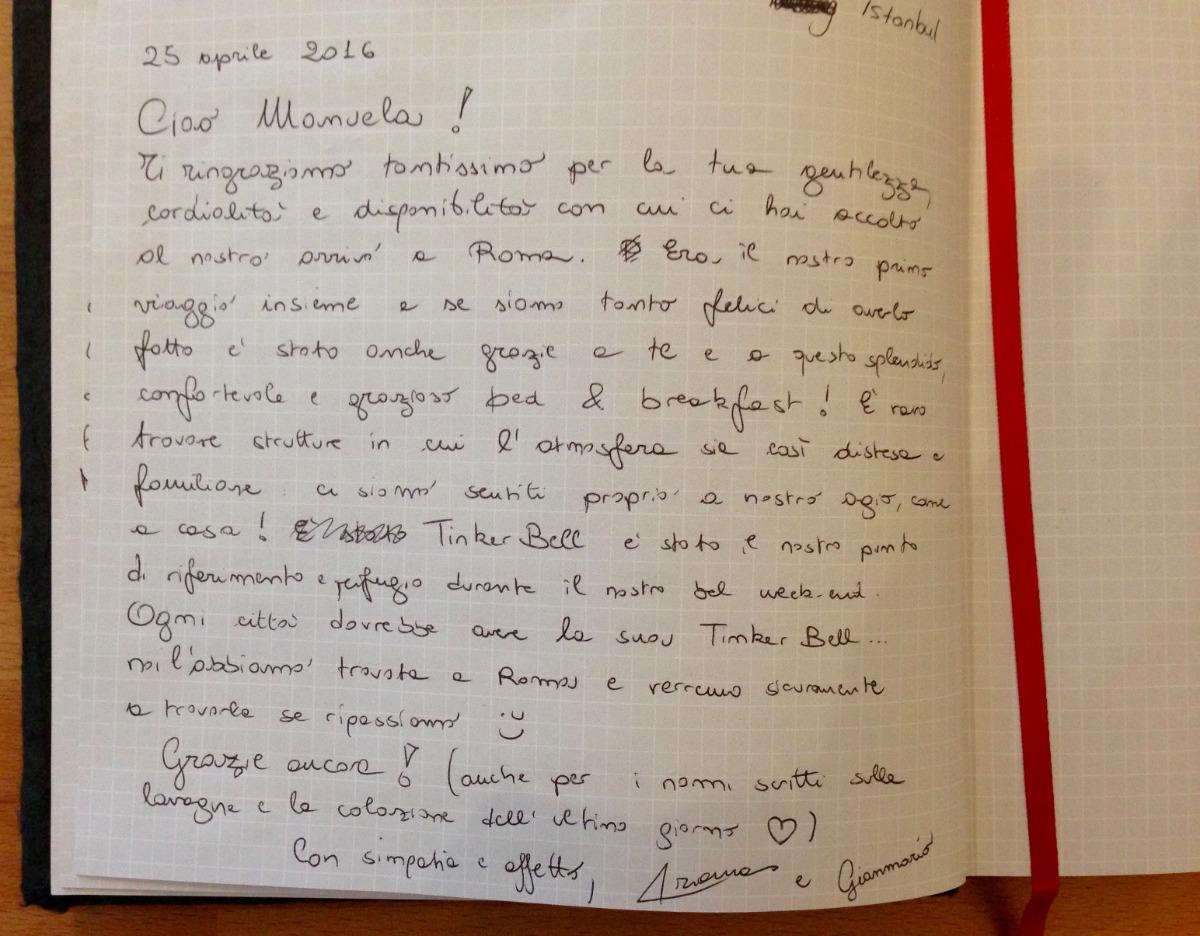 Istanbul
25 aprile 2016
Ciao Manuela!
Ti ringraziamo tantissimo per la tua gentilezza,
cordialità e disponibilità con cui ci hai accolto
al nostro arrivo a Roma. Era il nostro primo
viaggio insieme e se siamo tanto felici di averlo
fatto è stato anche grazie a te e a questo splendido,
confortevole e grazioso bed & breakfast! È raro
trovare strutture in cui l'atmosfera sia così distesa e
familiare: ci siamo sentiti proprio a nostro agio, come
a casa! Tinker Bell è stato il nostro punto
di riferimento e rifugio durante il nostro bel week-end.
Ogni città dovrebbe avere la sua Tinker Bell...
noi l'abbiamo trovata a Roma e verremo sicuramente
a trovarla se ripassiamo :)
Grazie ancora! (anche per i nomi scritti sulla
lavagna e la colazione dell'ultimo giorno ♡)
Con simpatia e affetto, e Gianmario